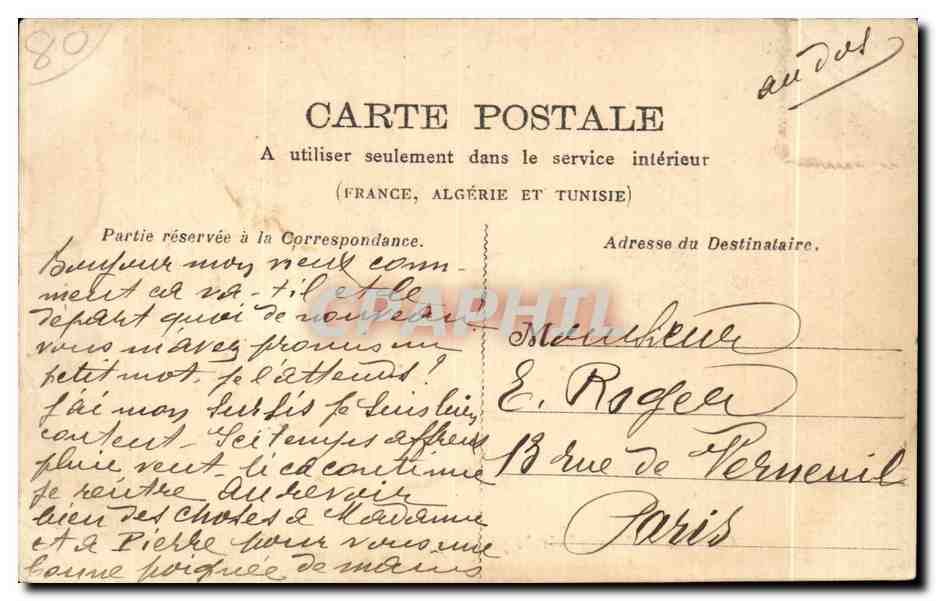 80
au dos
CARTE POSTALE
A utiliser seulement dans le service intérieur
(FRANCE, ALGÉRIE ET TUNISIE)
Partie réservée à la Correspondance.
Bonjour mon vieux com-
ment ca va-t-il et le
départ quoi de nouveau
vous m'avez promis un
petit mot. je l'attends!
j'ai mon sursis je suis bien
content. Ici temps affreux
pluie vent. si ca continue
je rentre au revoir
bien des choses à Madame
et à Pierre pour vous une
bonne poignée de mains
Adresse du Destinataire.
Monsieur
E. Roger
13 rue de Verneuil
Paris
CPAPHIL